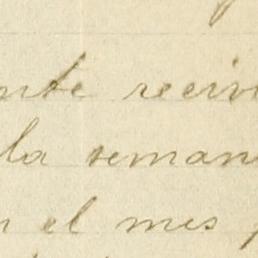 nte reciv
la seman
n el mes p